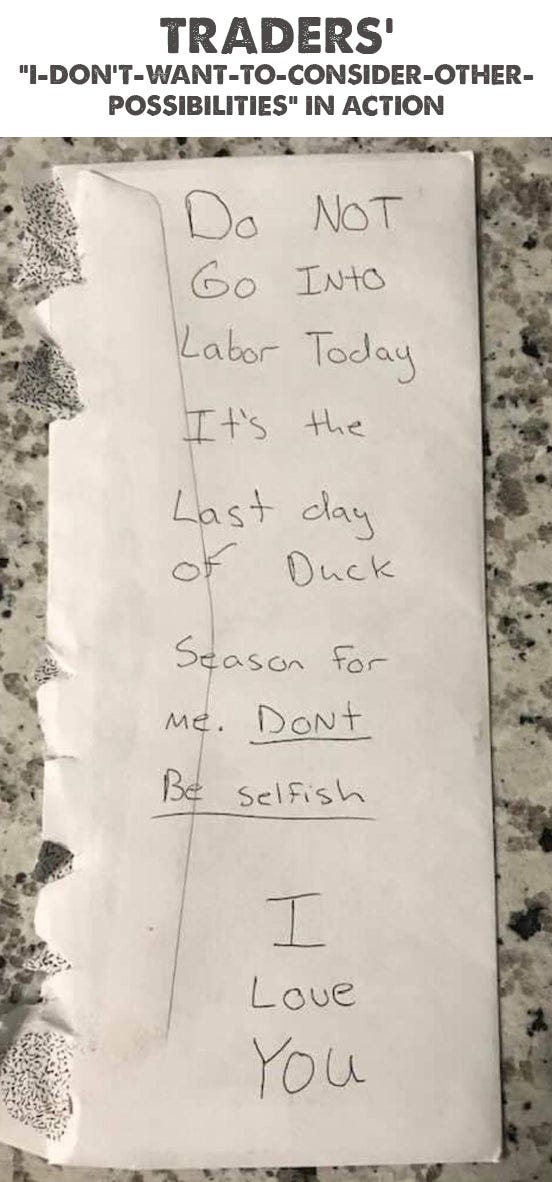 TRADERS'
"I-DON'T-WANT-TO-CONSIDER-OTHER-
POSSIBILITIES" IN ACTION
Do NOT
Go INto
Labor Today
It's the
Last day
of Duck
Season for
me. DONt
Be selfish
I
Love
You